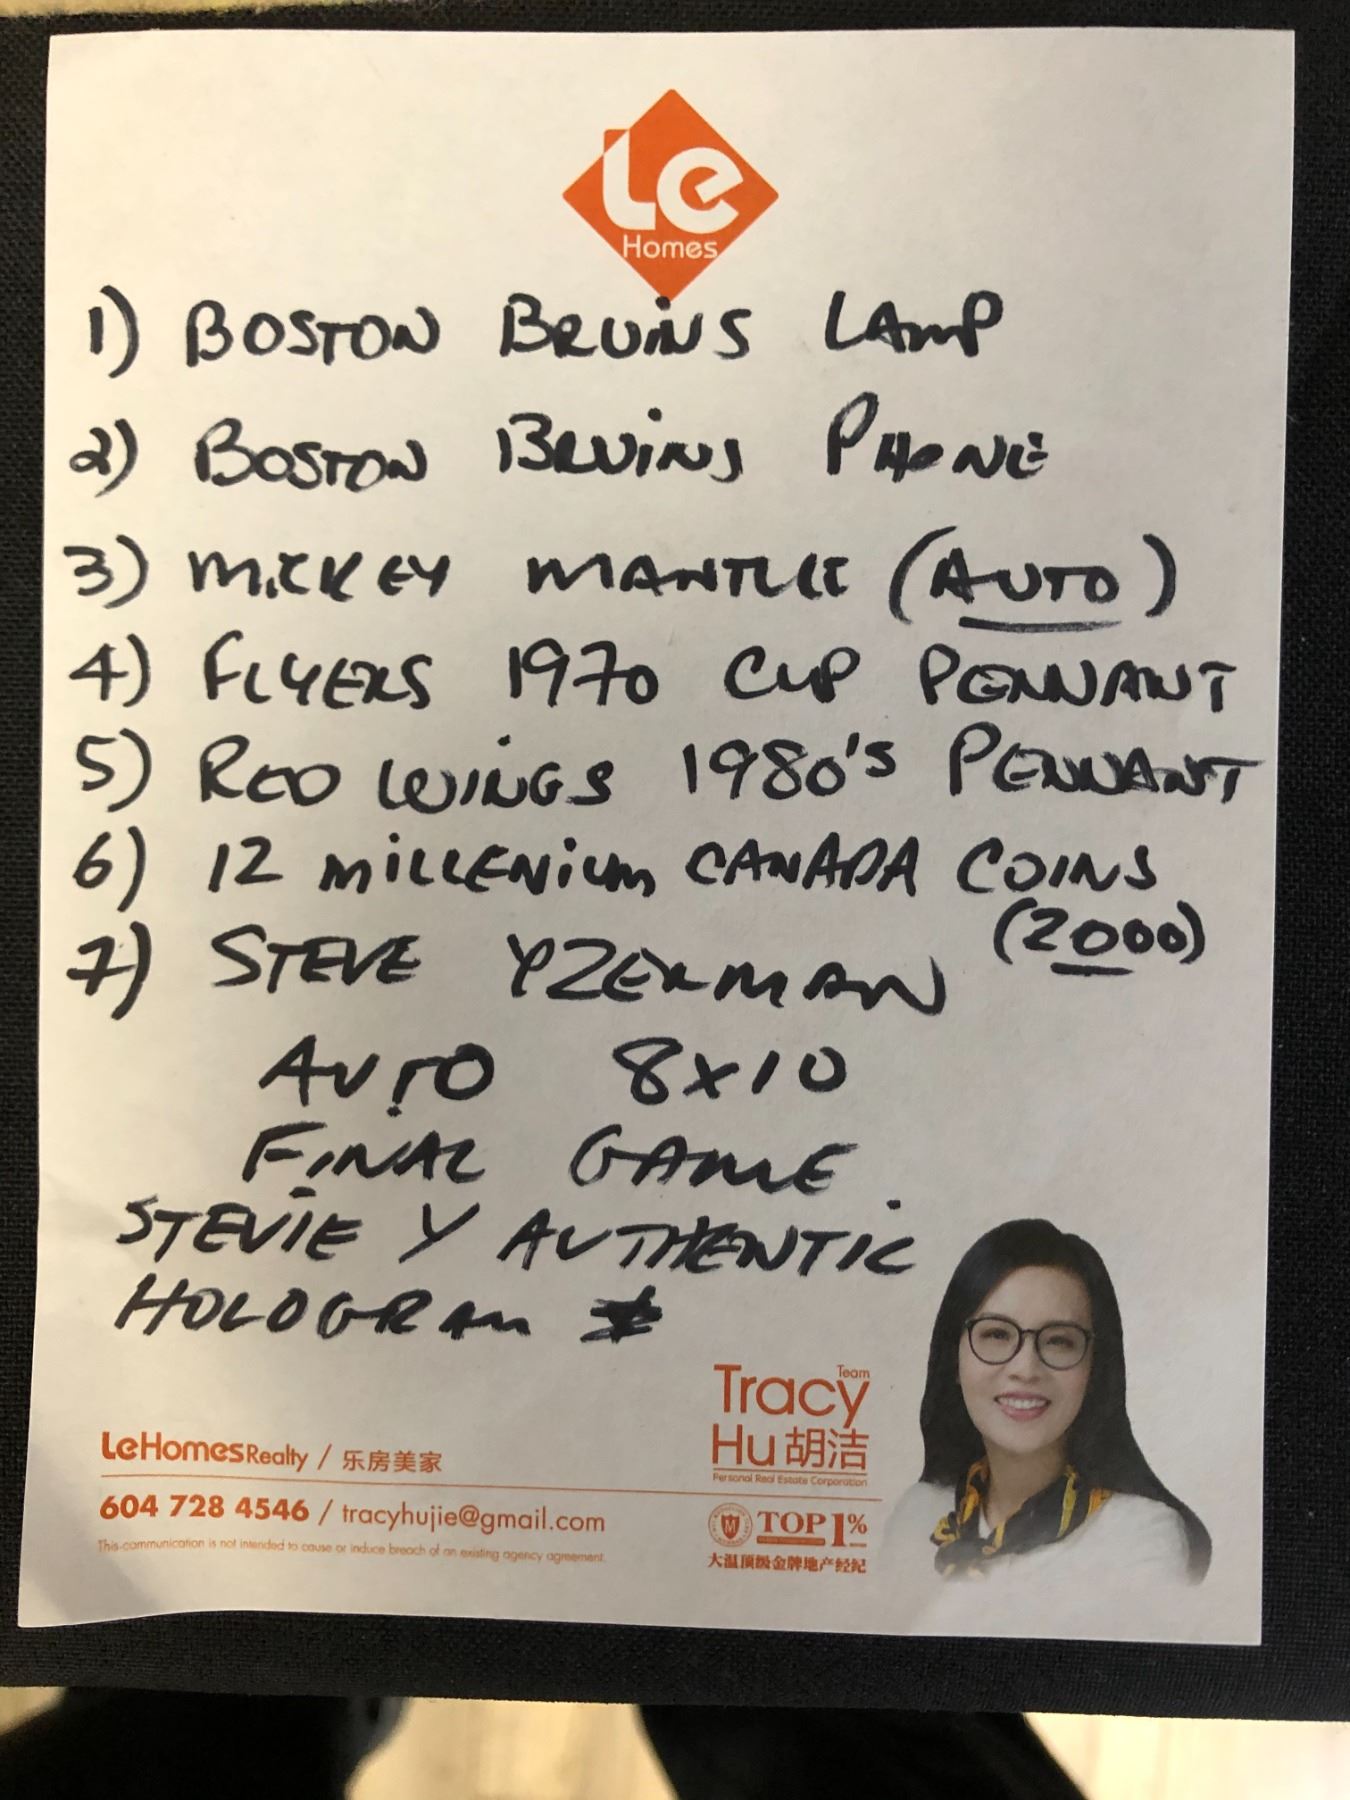 Le
Homes
1) BOSTON BRUiNS LAMP
2) BOSTON BRUiNS PHONE
3) MICKEY MANTLE (AUTO)
4) FLYERS 1970 CUP PENNANT
5) RED WINGS 1980's PENNANT
6) 12 MiLLENiUM CANADA COINS
(2000)
7) STEVE YZERMAN
AUTO 8x10
FINAL GAME.
STEVIE Y AUTHENTIC
HOLOGRAM *
Team
Tracy
Hu 胡洁
Personal Real Estate Corporation
LeHomes Realty / 乐房美家
604 728 4546 / tracyhujie@gmail.com
This communication is not intended to cause or induce breach of an existing agency agreement.
TOP 1%
大温顶级金牌地产经纪